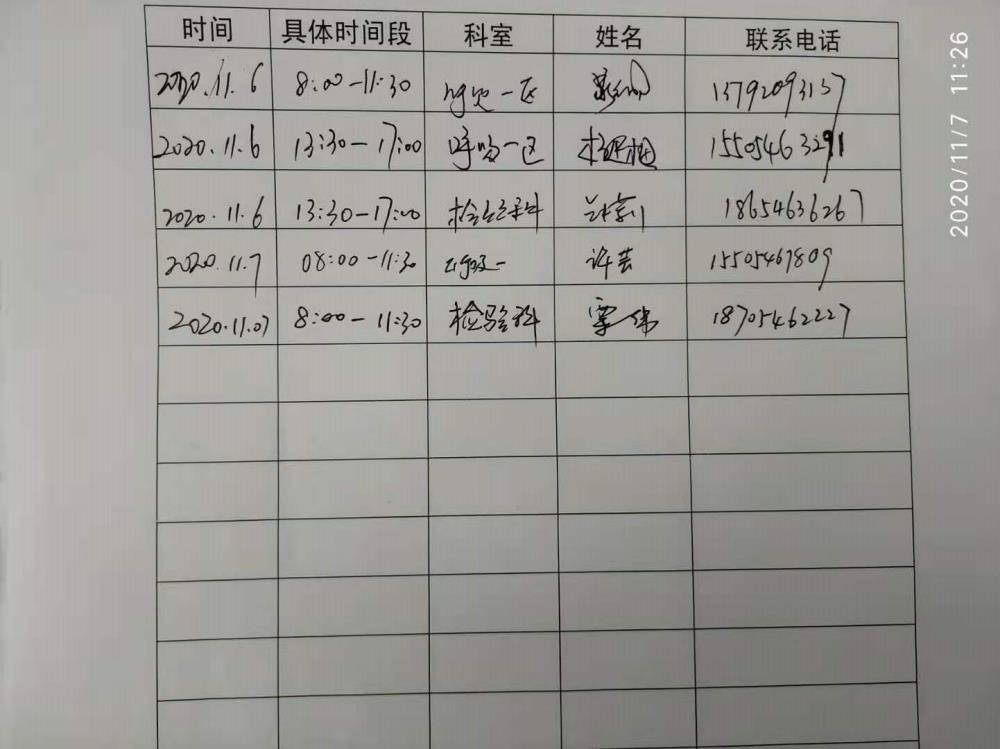 时间 具体时间段 科室 姓名 联系电话
2020.11.6 8:00-11:30 呼吸一区 13792093137
2020.11.6 13:30-17:00 呼吸一区 15505463291
2020.11.6 13:30-17:00 检验科 18654636267
2020.11.7 08:00-11:30 呼吸一 许芸 15505467809
2020.11.07 8:00-11:30 检验科 18705462227
2020/11/7 11:26